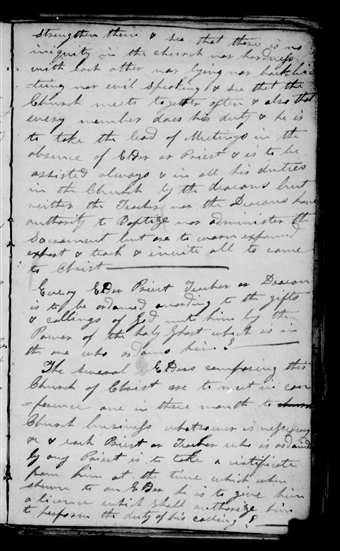 strengthen them & see that there is no
iniquity in the church nor hardness
with each other nor lying nor back bi
-ting nor evil speaking & see that the
Church meets together often & also that
every member does his duty & he is
to take the lead of Meetings in the
absence of Elder or Priest & is to be
assisted always & in all his duties
in the Church by the deacons but
neither the Teacher nor the Deacons have
authority to Baptize nor administer the
Sacrament but are to warn expound
exhort & teach & invite all to come
to Christ
Every Elder Priest Teacher or Deacon
is to be ordained according to the gifts
& callings of God unto him by the
Power of the holy Ghost which is in
the one who ordains him
The several Elders composing this
Church of Christ are to meet in con
-ference once in three months to
Church business whatsoever is necessary
& each Priest or Teacher who is ordained
by any Priest is to take a certificate
from him at the time which when
shewn to an Elder he is to give him
a licence which shall authorize him
to perform the duty of his calling